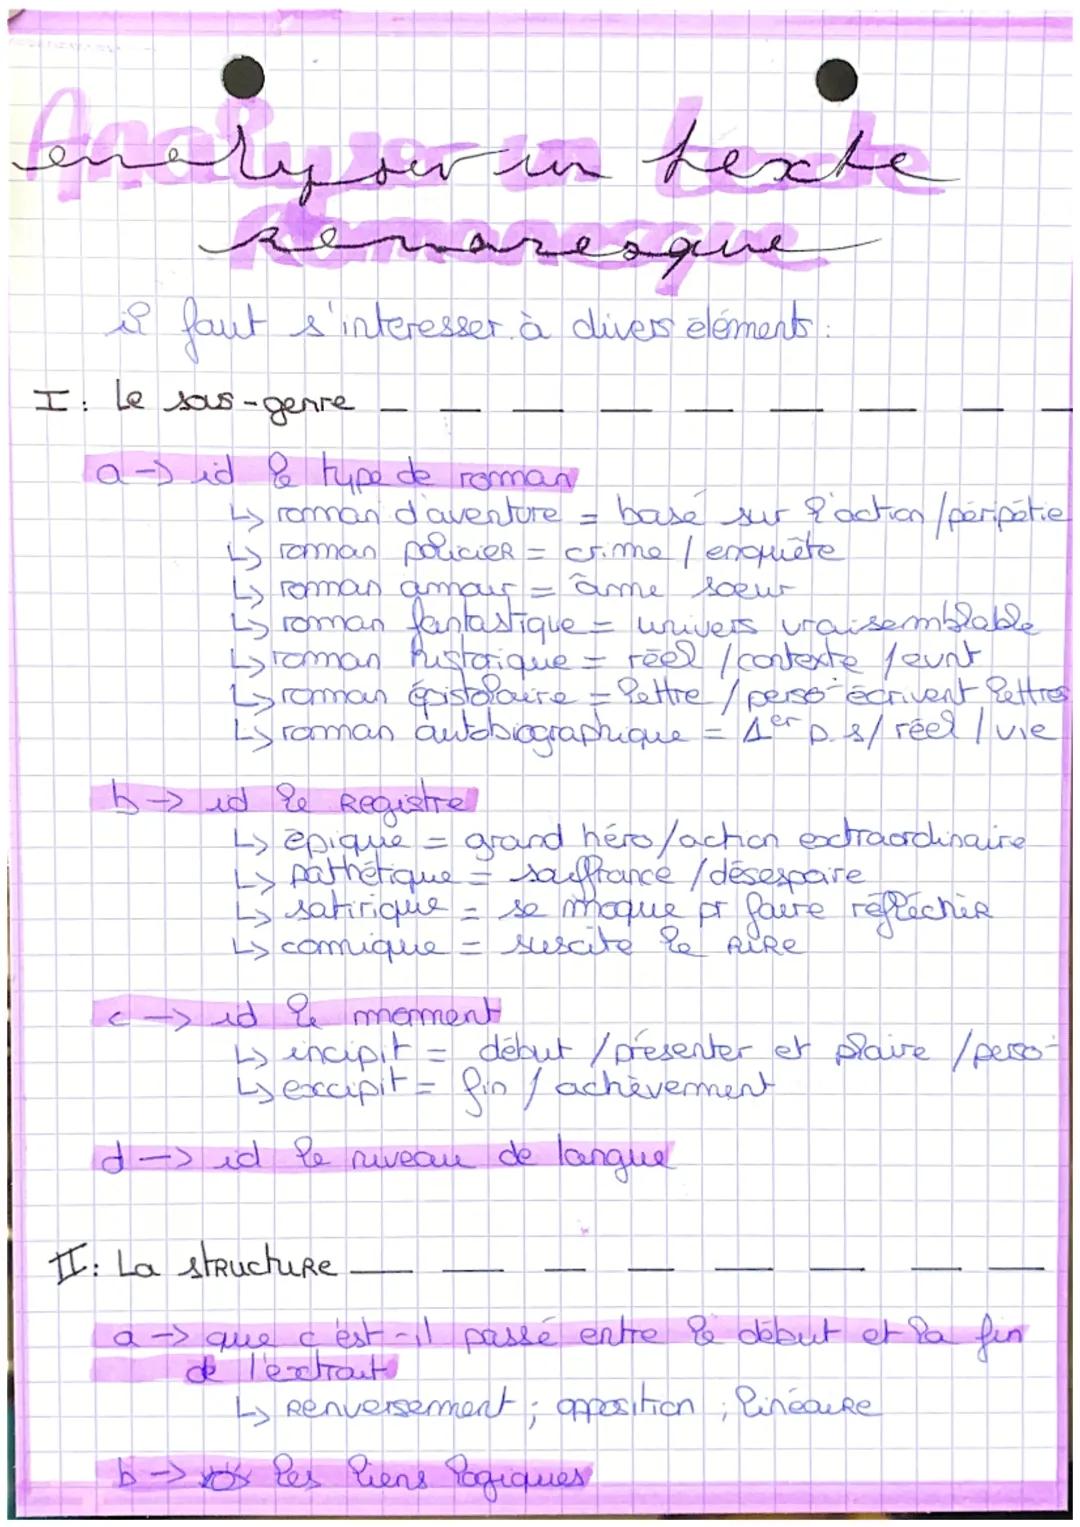 Analyser un texte
Romanesque
il faut s'interesser à divers éléments :
I : Le sous-genre
a → id le type de roman
↳ roman d'aventure = basé sur l'action / péripétie
↳ roman policier = crime / enquête
↳ roman amour = âme soeur
↳ roman fantastique = univers vraisemblable
↳ roman historique = réel / contexte / evnt
↳ roman épistolaire = lettre / perso écrivent lettres
↳ roman autobiographique = 1er p. s / réel / vie
b → id le Registre
↳ épique = grand héro / action extraordinaire
↳ pathétique = souffrance / désespoire
↳ satirique = se moque pr faire réfléchir
↳ comique = suscite le rire
c → id le moment
↳ incipit = début / présenter et plaire / perso
↳ excipit = fin / achèvement
d → id le niveau de langue
II : La structure
a → que c'est-il passé entre le début et la fin
de l'extrait
↳ renversement ; opposition ; linéaire
b → les liens logiques